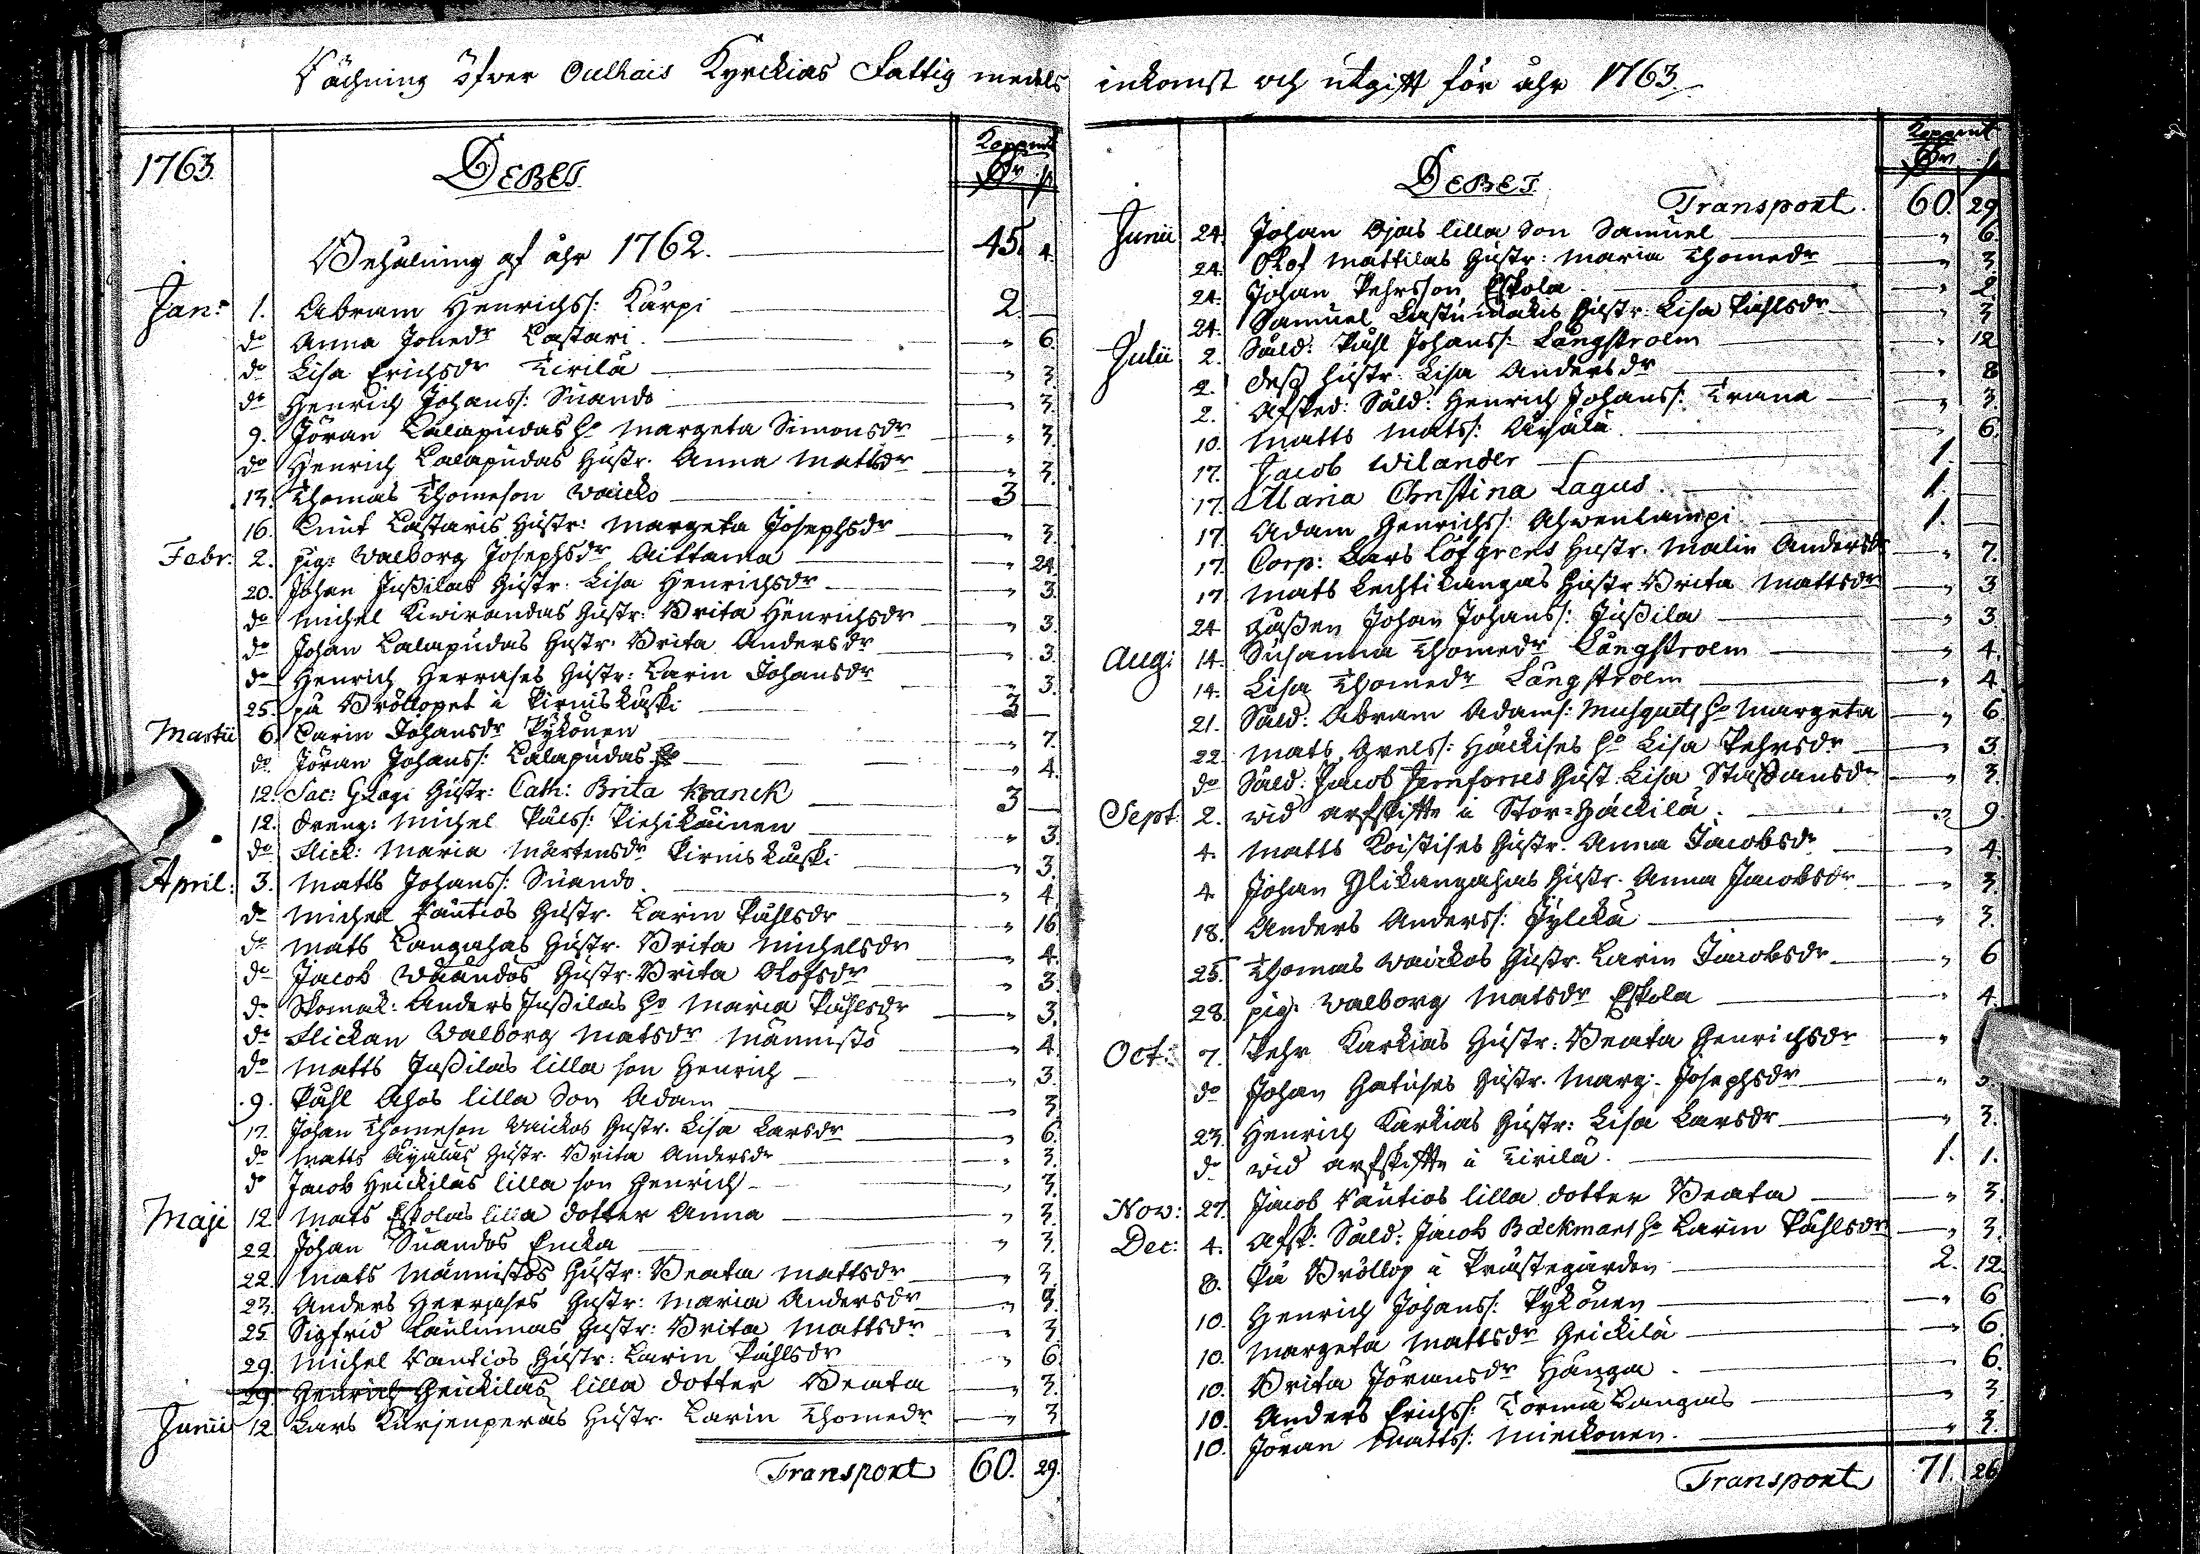 Räckning öfver Oulhais Kyrckias Fattig medels inkomst och utgift för åhr 1763.
1763. DEBET Kopparmt
Dr /
Behålning af åhr 1762. 45. 4.
Jan: 1. Abram Henrichs/: Karpi 2. —
do Anna Jonedr Castari " 6.
do Lisa Erichsdr Tirilä " 3.
do Henrich Johans/: Suando " 3.
9. Jöran Lalapudas ho Margeta Simonsdr " 3.
do Henrich Lalapudas Hustr. Anna Mattsdr " 3.
13. Thomas Thomeson Waicko 3 —
16. Knut Castaris Hustr: Margeta Josephsdr " 3.
Febr: 2. pig: Walborg Josephsdr Aittama " 24.
20. Johan Jußilas Hustr: Lisa Henrichsdr " 3.
do Michel Kiwirandas Hustr: Brita Henrichsdr " 3.
do Johan Lalapudas Hustr. Brita Andersdr " 3.
do Henrich Herrases Hustr: Carin Johansdr " 3.
25. på Bröllopet i Pirniskaski 3 —
Martii 6. Carin Johansdr Pykönen " 7.
do Jöran Johans/: Lalapudas " 4.
12. Sac: Hustr: Cath: Brita Kranck 3 —
12. Dreng: Michel Påls/: Piehikäinen " 3.
do Flick: Maria Mårtensdr Pirniskaski " 3.
April: 3. Matts Johans/: Suando " 4
do Michel Kautios Hustr. Carin Påhlsdr " 16
do Mats Langahas Hustr. Brita Michelsdr " 4.
do Jacob Waandos Hustr. Brita Olofsdr " 3.
do Skomak: Anders Jußilas ho Maria Påhlsdr " 3.
do Flickan Walborg Matsdr Männistö " 4.
do Matts Jußilas lilla son Henrich " 3.
9. Påhl Ahos lilla Son Adam " 3
17. Johan Thomeson Waickos Hustr. Lisa Larsdr " 6.
do Matts Hustr. Brita Andersdr " 3.
do Jacob Heickiläs lilla son Henrich " 3.
Maji 12. Mats Eskolas lilla dotter Anna " 3.
22. Johan Suandos Encka " 3.
22. Mats Männistös Hustr: Beata Mattsdr " 3.
23. Anders Herrases Hustr: Maria Andersdr " 3.
25. Sigfrid Laulumas Hustr: Brita Mattsdr " 3
29. Michel Kautios Hustr: Carin Påhlsdr " 6
29. Henrich Heickiläs lilla dotter Beata " 3.
Junii 12. Lars Kurjenperäs Hustr. Carin Thomedr " 3
Transport 60. 29.
DEBET Kopparmt
Dr /
Transport. 60. 29.
Junii 24. Johan Ojas lilla son Samuel " 6.
24. Olof Mattilas Hustr: Maria Thomedr " 3.
24. Johan Pehrsson Eskola " 2.
24. Samuel Hustr. Lisa Påhlsdr " 3
Julii 2. Såld: Påhl Johans/: Långstroem " 12
2. Deß Hustr. Lisa Andersdr " 8
2. Afsked: Såld: Henrich Johans/: Trana " 3.
10. Matts Mats/: " 6.
17. Jacob Wilander 1. —
17. Maria Christina Lagus 1. —
17. Adam Henrichs/: Ahwenlampi 1. —
17. Corp: Lars Löfgrens Hustr. Malin Andersdr " 7.
17. Mats Lechtikangas Hustr Brita Mattsdr " 3
24 Johan Johans/: Jußila " 3
Aug: 14. Susanna Thomedr Långstroem " 4.
14. Lisa Thomedr Långstroem " 4.
21. Såld: Abram Adams/: Musquets ho Margeta " 6
22. Mats Grels/: Häckises ho Lisa Pehrsdr " 3
do Såld: Jacob Jernforses Hust. Lisa Staffansdr " 3.
Sept. 2. wid arfskifte i Stor-Häckilä " 9.
4. Matts Koistises Hustr. Anna Jacobsdr " 4.
4. Johan Ylikangahas Hustr. Anna Jacobsdr " 3
18. Anders Anders/: Jylckä " 3.
25. Thomas Waickos Hustr. Carin Jacobsdr " 6
28. pig: Walborg Matsdr Eskola " 4.
Oct: 7. Pehr Karkias Hustr: Beata Henrichsdr "
do Johan Hatuses Hustr. Marg: Josephsdr " 3.
23. Henrich Karkias Hustr: Lisa Larsdr " 3.
do wid arfskifte i Tirilä. 1. 1.
Now: 27. Jacob Kautios lilla dotter Beata " 3.
Dec: 4. Afsk: Såld: Jacob Backmans ho Carin Påhlsdr " 3.
8. På Bröllop i Prästegården 2. 12.
10. Henrich Johans/: Pykönen " 6
10. Margeta Mattsdr Heickilä " 6.
10. Brita Jöransdr Hanga " 6.
10. Anders Erichs/: Törmä Langas " 3
10. Jöran Matts/: Mieckonen. " 3.
Transport 71. 26